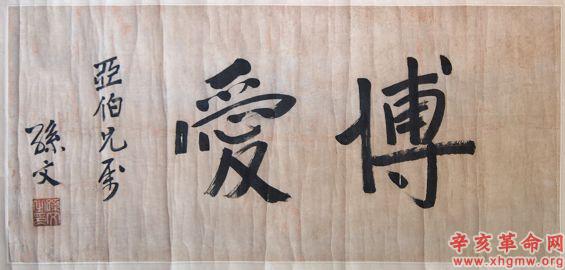 博愛
亞伯兄屬
孫文
辛亥革命网
www.xhgmw.org